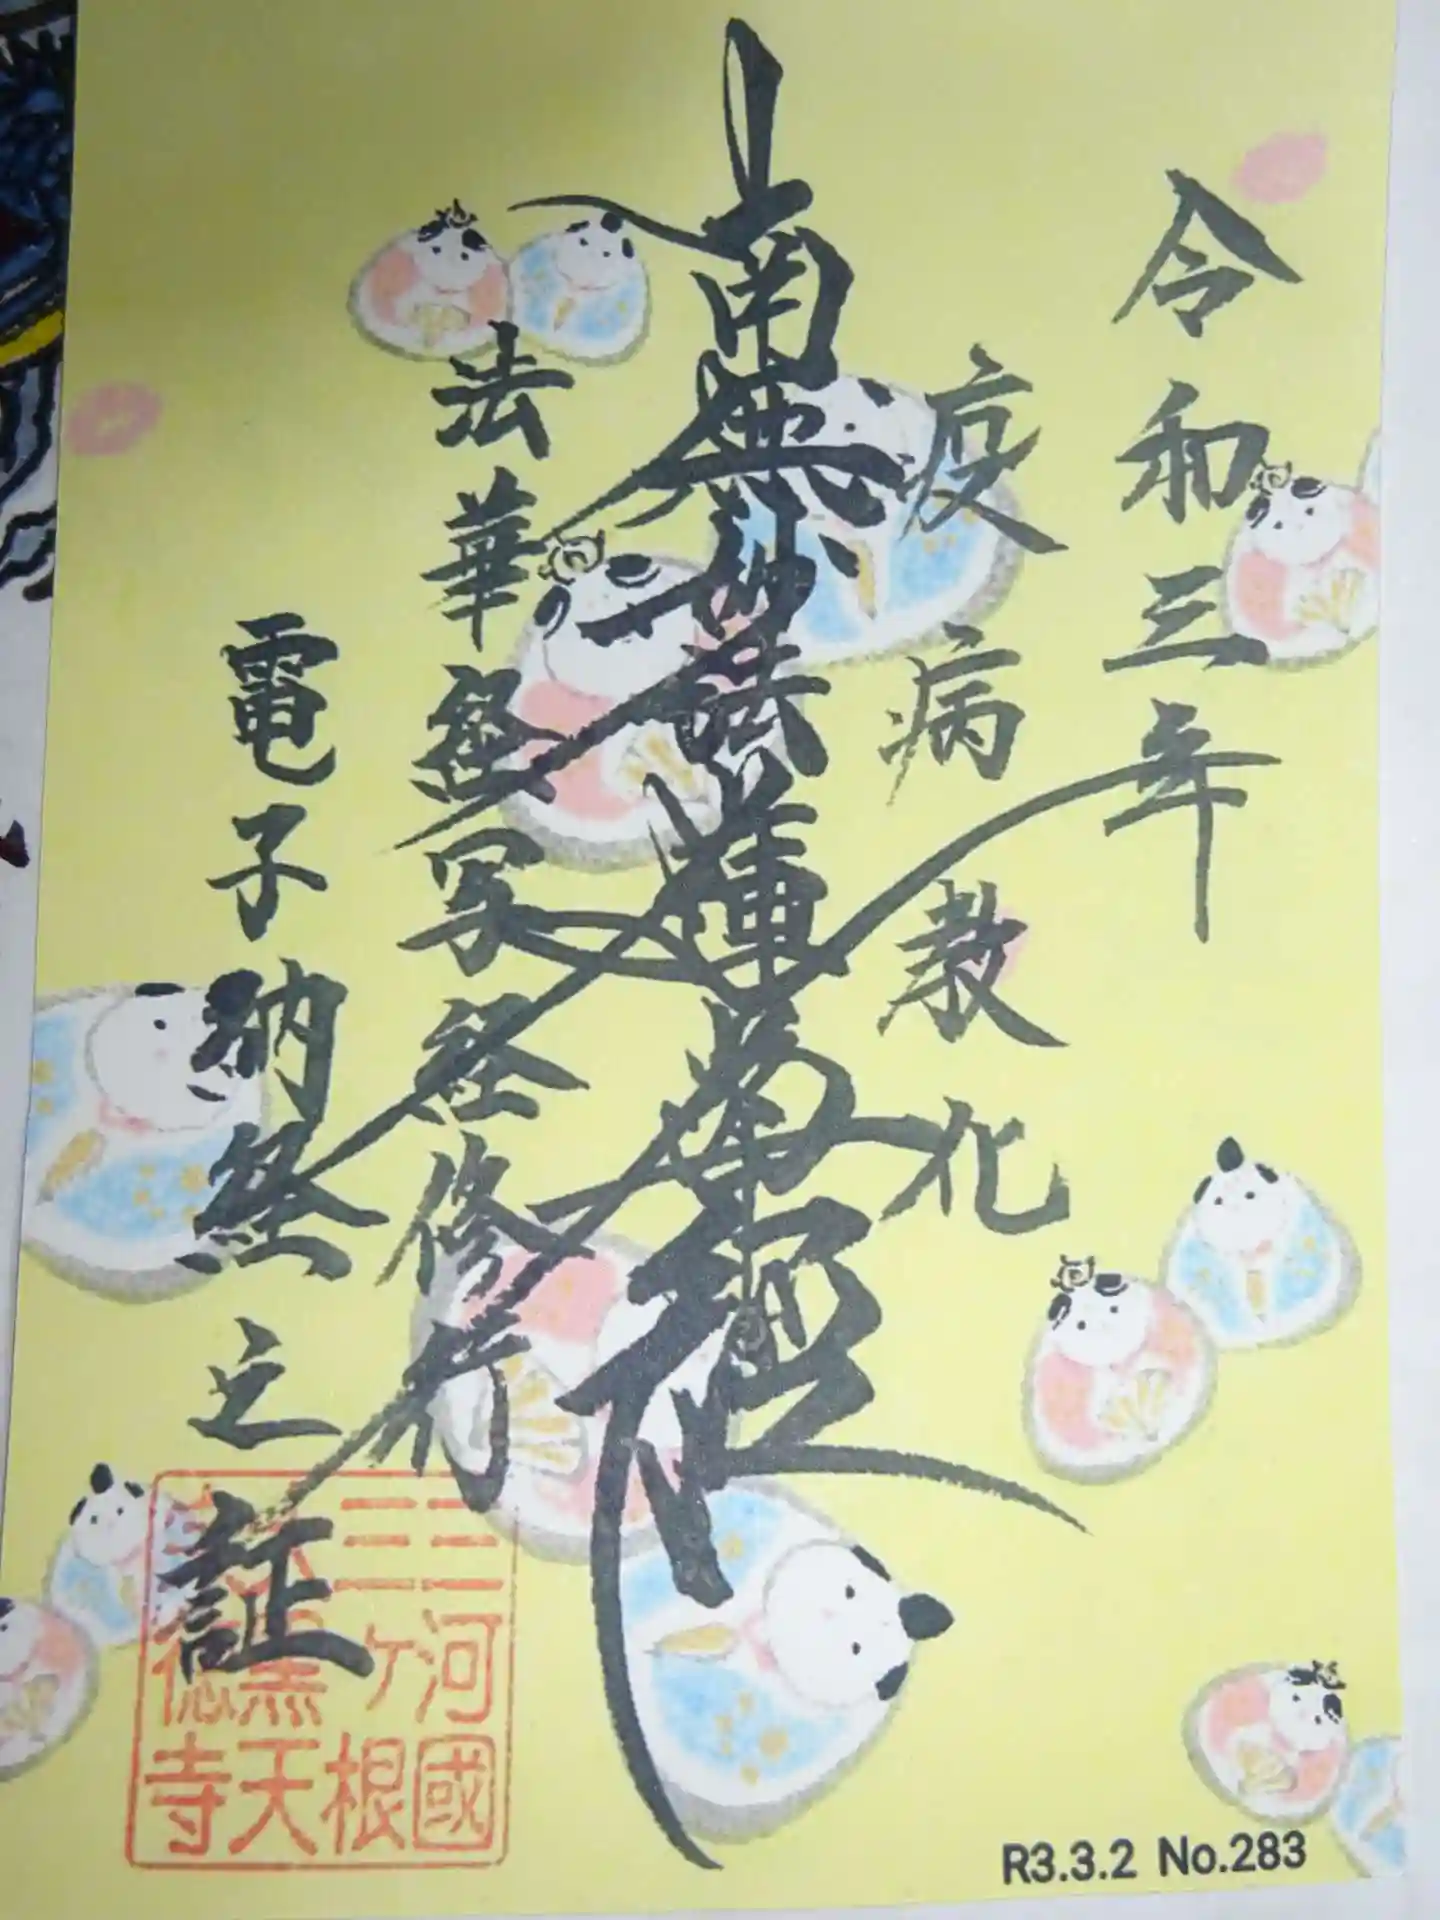 令和三年
疫病教化
南無妙法蓮華経
法華経写経修行
電子納経之証
三河國
三ヶ根
大黒天
徳寺
R3.3.2 No.283